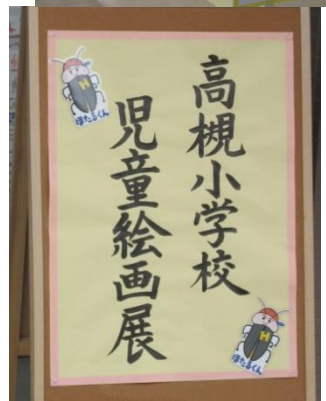 高槻小学校
児童絵画展
H
ほたるくん
H
ほたるくん